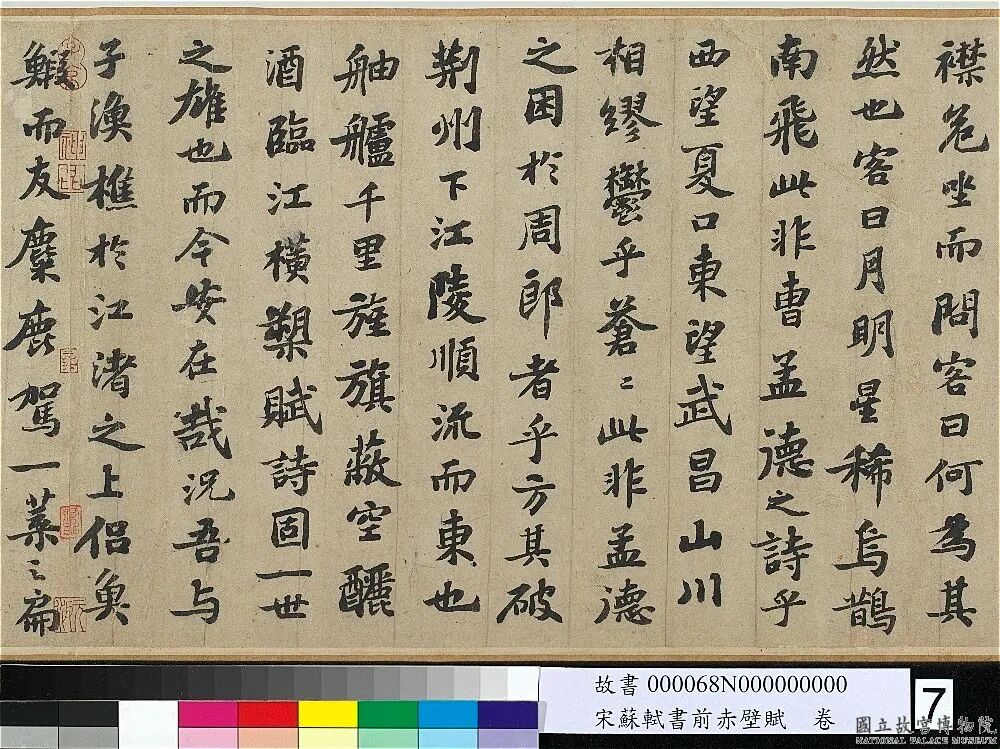 襟危坐而問客曰何為其
然也客曰月明星稀烏鵲
南飛此非曹孟德之詩乎
西望夏口東望武昌山川
相繆鬱乎蒼〻此非孟德
之困於周郎者乎方其破
荊州下江陵順流而東也
舳艫千里旌旗蔽空釃
酒臨江橫槊賦詩固一世
之雄也而今安在哉況吾与
子漁樵於江渚之上侶魚
鰕而友麋鹿駕一葉之扁
故書 000068N000000000
宋蘇軾書前赤壁賦 卷
7
國立故宮博物院
NATIONAL PALACE MUSEUM